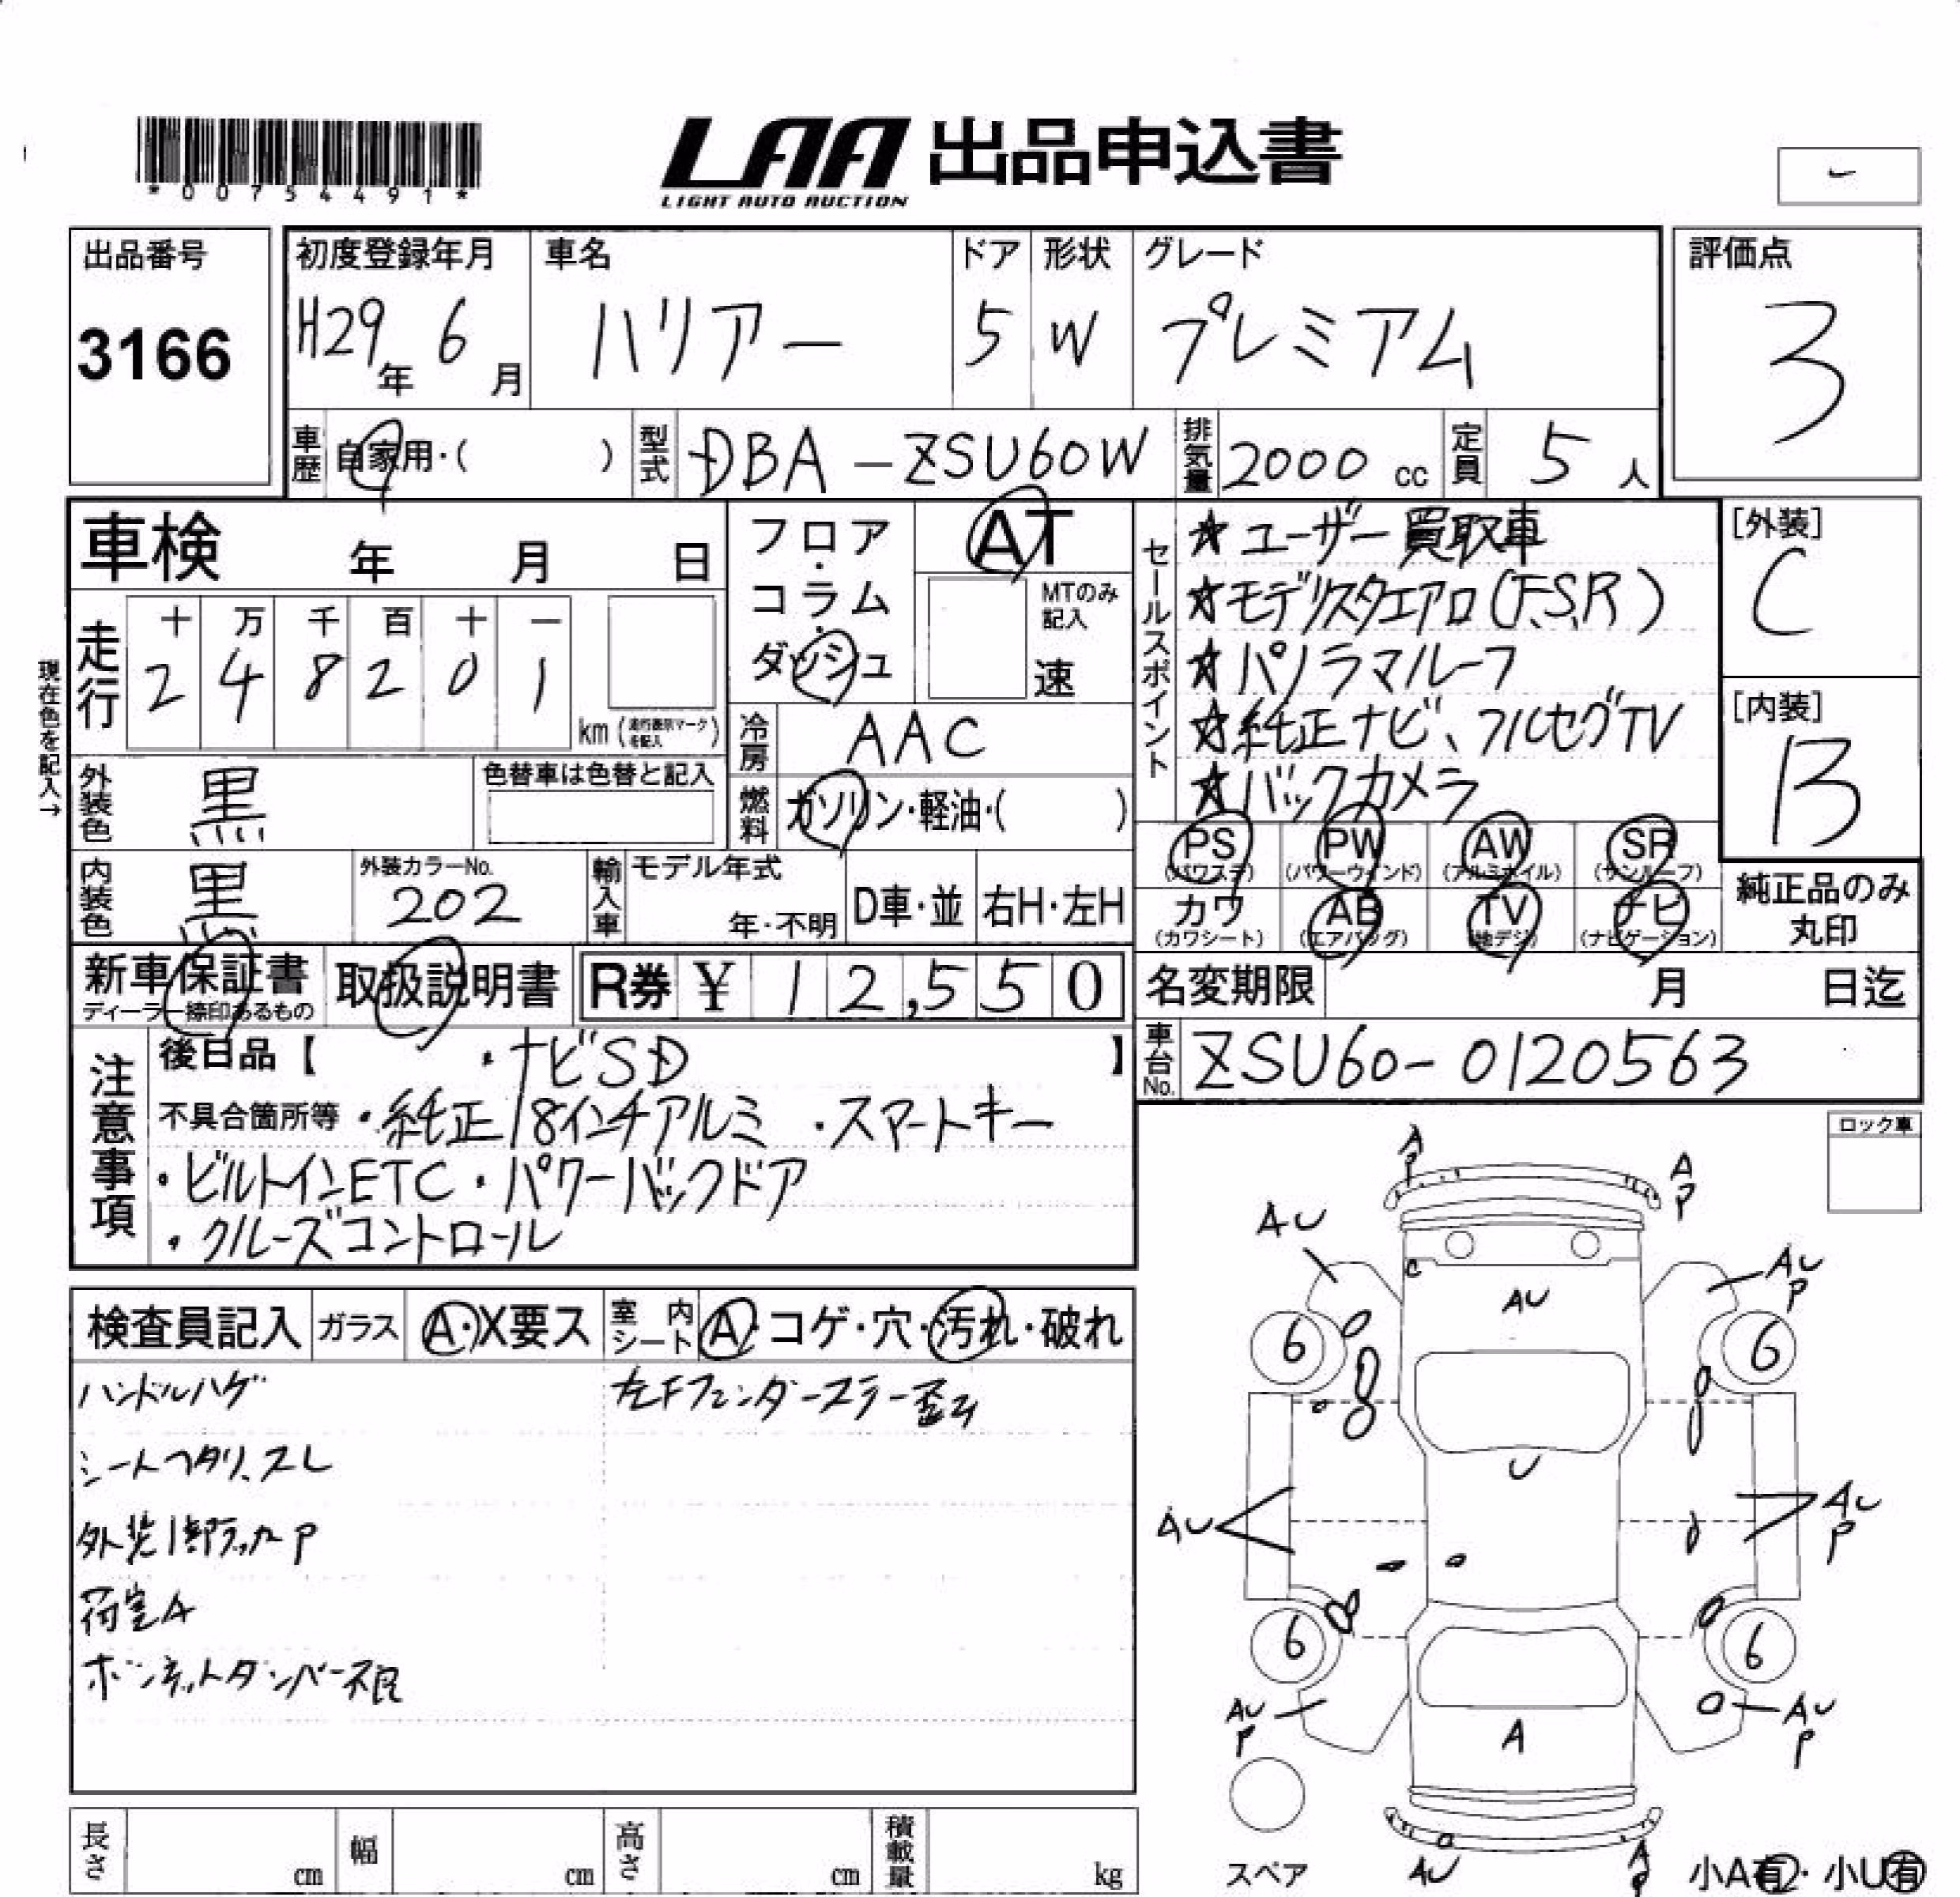 *00754491*
LAA 出品申込書
LIGHT AUTO AUCTION
出品番号
3166
初度登録年月
H29年 6月
車名
ハリアー
ドア
5
形状
W
グレード
プレミアム
評価点
3
車歴
自家用・( )
型式
DBA-ZSU60W
排気量
2000 cc
定員
5人
車検 年 月 日
フロア・コラム・ダッシュ
AT
MTのみ記入
速
セールスポイント
☆ユーザー買取車
☆モデリスタエアロ(F.S.R)
☆パノラマルーフ
☆純正ナビ、フルセグTV
☆バックカメラ
[外装]
C
[内装]
B
現在色を記入→
走行
十 万 千 百 十 一
2 4 8 2 0 1
km (走行表示マークを記入)
冷房
AAC
外装色
黒
色替車は色替と記入
燃料
ガソリン・軽油・( )
内装色
黒
外装カラーNo.
202
輸入車
モデル年式
年・不明
D車・並
右H・左H
PS
(パワステ)
PW
(パワーウインド)
AW
(アルミホイル)
SR
(サンルーフ)
カワ
(カワシート)
AB
(エアバッグ)
TV
(地デジ)
ナビ
(ナビゲーション)
純正品のみ
丸印
新車保証書
ディーラー捺印あるもの
取扱説明書
R券 ¥ 12,550
名変期限 月 日迄
車台No.
ZSU60-0120563
注意事項
後日品【 ・ナビSD 】
不具合箇所等 ・純正18インチアルミ ・スマートキー
・ビルトインETC ・パワーバックドア
・クルーズコントロール
ロック車
検査員記入
ガラス
A・X要ス
室内シート
A・コゲ・穴・汚れ・破れ
ハンドルハゲ
左Fフェンダーステー歪み
シートヘタリ、スレ
外装1部タッカーP
荷室A
ボンネットダンパー不良
A
P
A
P
AU
AU
P
C
AU
6
6
U
AU
AU
P
6
6
AU
P
AU
P
A
AU
A
P
スペア
小A有・小U有
長さ cm
幅 cm
高さ cm
積載量 kg